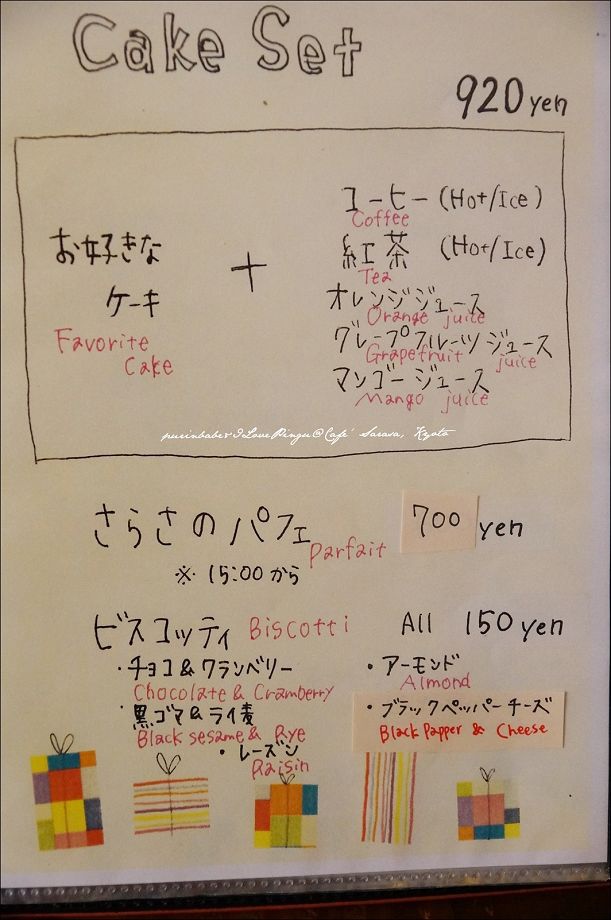 Cake Set
920 yen
お好きな
ケーキ
Favorite
Cake
+
コーヒー (Hot/Ice)
Coffee
紅茶 (Hot/Ice)
Tea
オレンジジュース
Orange juice
グレープフルーツジュース
Grapefruit juice
マンゴージュース
Mango juice
purinbaby & I Love Pingu @ Café Sarasa, Kyoto
さらさのパフェ 700 yen
Parfait
※ 15:00から
ビスコッティ Biscotti All 150 yen
・チョコ&クランベリー
Chocolate & Cramberry
・黒ゴマ&ライ麦
Black sesame & Rye
・レーズン
Raisin
・アーモンド
Almond
・ブラックペッパーチーズ
Black Papper & Cheese